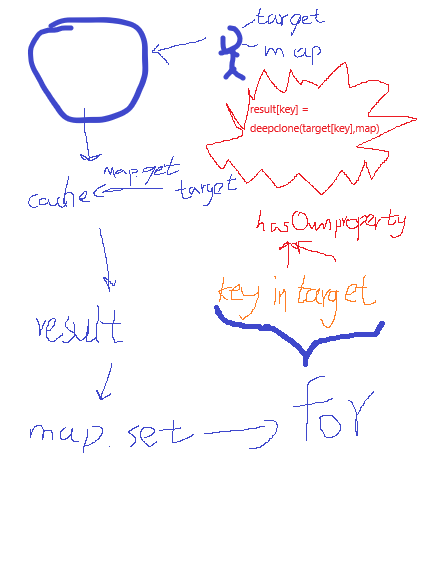 target
map
result[key] =
deepclone(target[key],map)
map.get
cache
target
hasOwnproperty
key in target
result
for
map. set